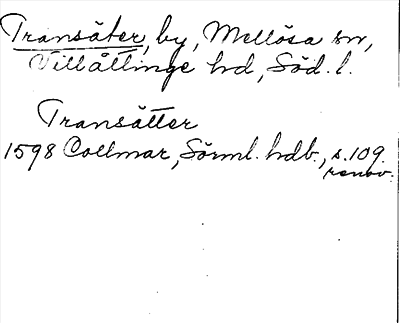 Transäter, by, Mellösa sn,
Villåttinge hd, Söd. l.
Transätter
1598 Collmar, Sörml. hdb., s. 109.
renov.